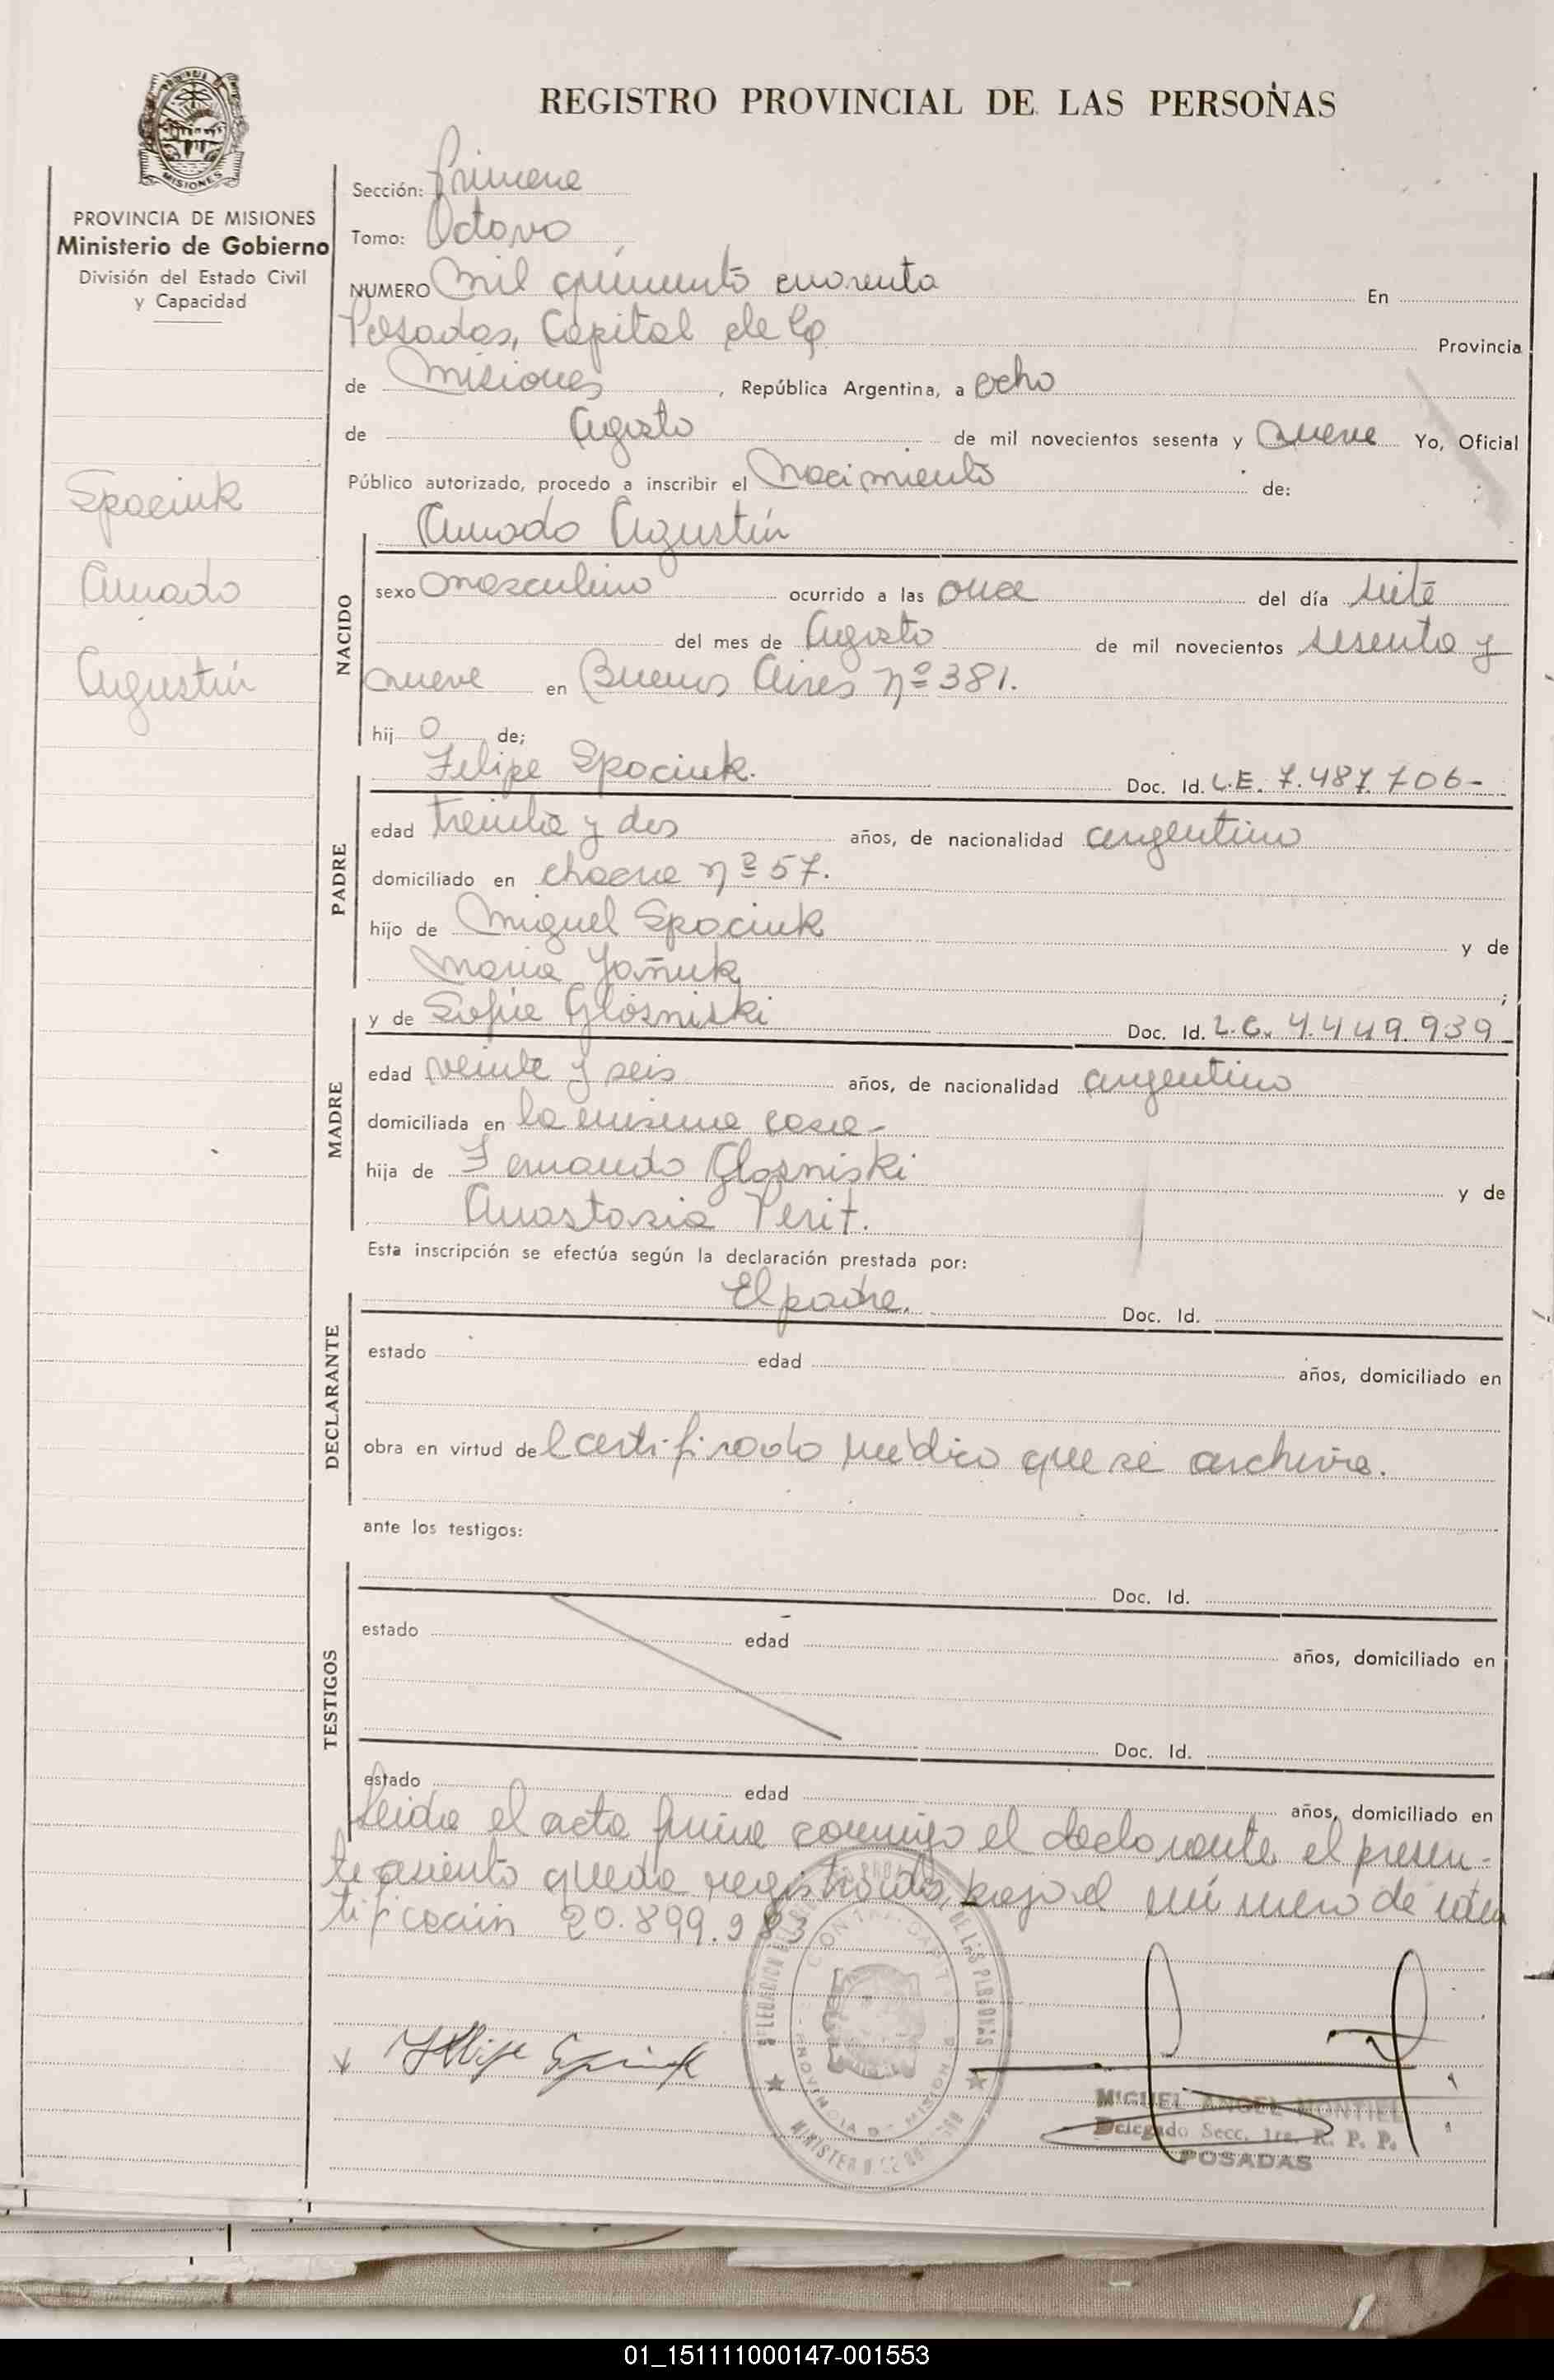 REGISTRO PROVINCIAL DE LAS PERSONAS
MISIONES
PROVINCIA DE MISIONES
Ministerio de Gobierno
División del Estado Civil
y Capacidad
Spaciuk
Amado
Agustín
Sección: Primera
Tomo: Octavo
NUMERO Mil quinientos cuarenta En
Posadas, Capital de la Provincia
de Misiones, República Argentina, a ocho
de Agosto de mil novecientos sesenta y nueve Yo, Oficial
Público autorizado, procedo a inscribir el Nacimiento de:
Amado Agustín
NACIDO
sexo masculino ocurrido a las once del día siete
del mes de Agosto de mil novecientos sesenta y
nueve en Buenos Aires nº 381.
hij o de;
Felipe Spaciuk. Doc. Id. L.E. 7.487.706-
PADRE
edad treinta y dos años, de nacionalidad argentino
domiciliado en chacra nº 57.
hijo de Miguel Spaciuk y de
Maria Yañuk ;
y de Sofia Glosniski Doc. Id. L.C. 4.449.939
MADRE
edad veinte y seis años, de nacionalidad argentino
domiciliada en la misma casa-
hija de Fernando Glosniski y de
Anastasia Perit.
Esta inscripción se efectúa según la declaración prestada por:
El padre. Doc. Id.
DECLARANTE
estado edad años, domiciliado en
obra en virtud de l certificado médico que se archiva.
ante los testigos:
Doc. Id.
TESTIGOS
estado edad años, domiciliado en
Doc. Id.
estado edad años, domiciliado en
Leida el acta firma conmigo el declarante el presen-
te asiento queda registrado bajo el número de iden
tificación 20.899.983
Felipe Spaciuk
MIGUEL ANGEL MONTIEL
Delegado Secc. 1ra. R. P. P.
POSADAS
01_151111000147-001553